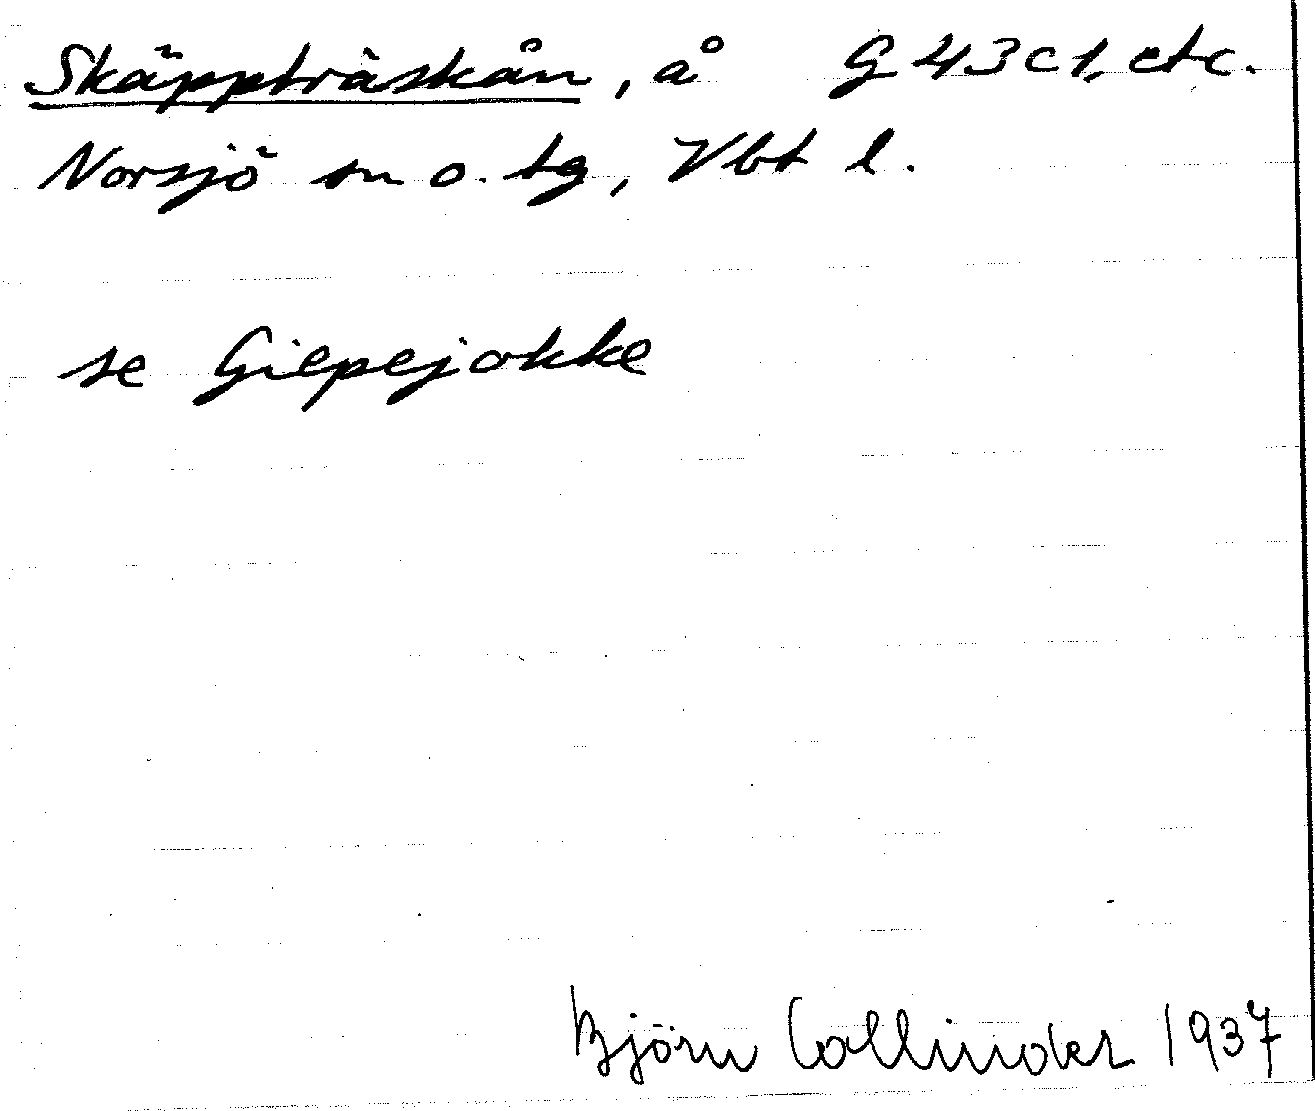 Skäppträskån, å G 43 c 1, etc.
Norsjö sn o. tg, Vbt l.
se Giepejokke
Björn Collinder 1937